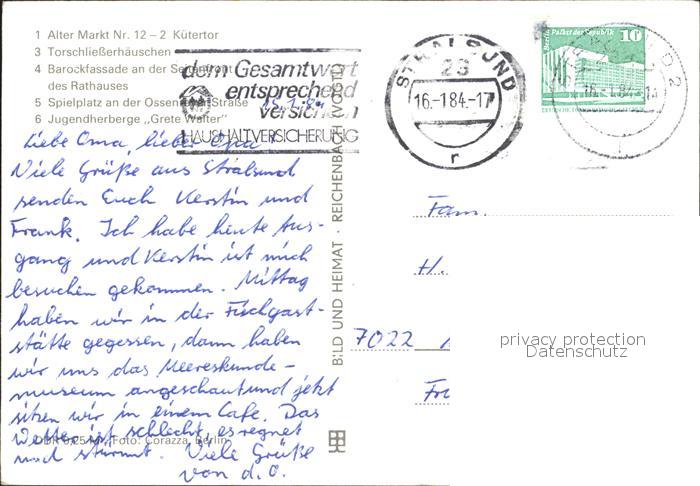 1 Alter Markt Nr. 12 – 2 Kütertor
3 Torschließerhäuschen
4 Barockfassade an der Seitenfront
des Rathauses
5 Spielplatz an der Ossenreyer Straße
6 Jugendherberge „Grete Walter"
dem Gesamtwert
entsprechend
versichern
HAUSHALTVERSICHERUNG
STRALSUND
23
16.-1.84.-17
r
Berlin, Palast der Republik
10
D 2
15.1.84
Liebe Oma, lieber Opa
Viele Grüße aus Stralsund
senden Euch Kerstin und
Frank. Ich habe heute Aus-
gang und Kerstin ist mich
besuchen gekommen. Mittag
haben wir in der Fischgast-
stätte gegessen, dann haben
wir uns das Meereskunde-
museum angeschaut und jetzt
sitzen wir in einem Cafe. Das
Wetter ist schlecht, es regnet
und stürmt. Viele Grüße
von d. O.
Foto: Corazza, Berlin
BILD UND HEIMAT · REICHENBACH (VOGTL)
Fam.
H.
7022
privacy protection
Datenschutz